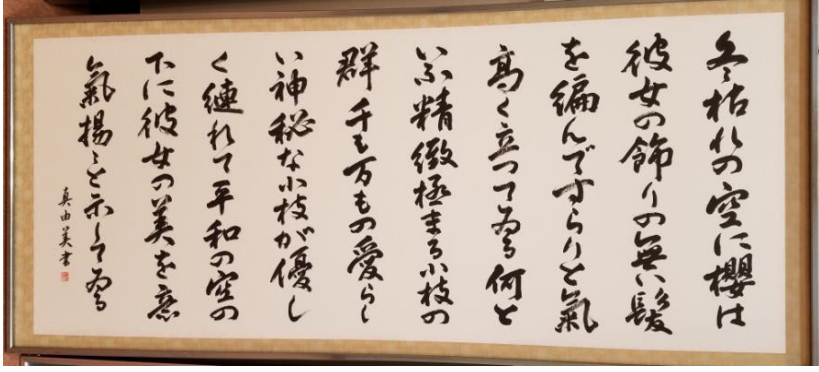 冬枯れの空に櫻は
彼女の飾りの無い髪
を編んですらりと氣
高く立つて居る何と
いふ精緻極まる小枝の
群千も万もの愛らし
い神秘な小枝が優し
く縺れて平和の空の
下に彼女の美を意
氣揚々と示して居る
真由美書